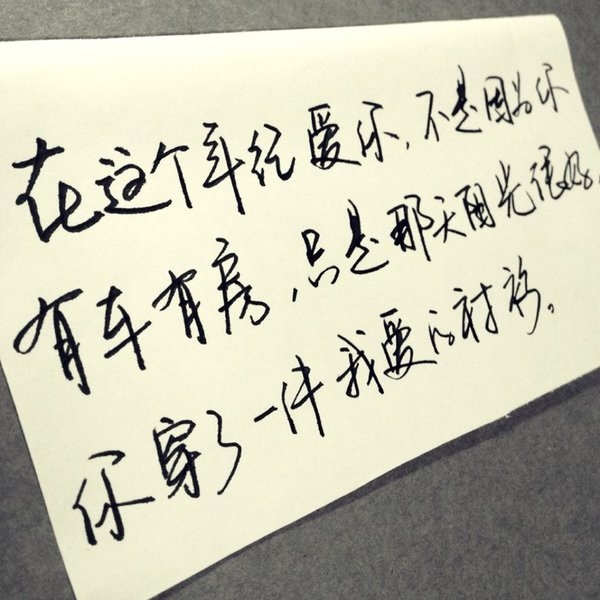 在这个年纪爱你,不是因为你
有车有房,只是那天阳光很好,
你穿了一件我爱的衬衫。